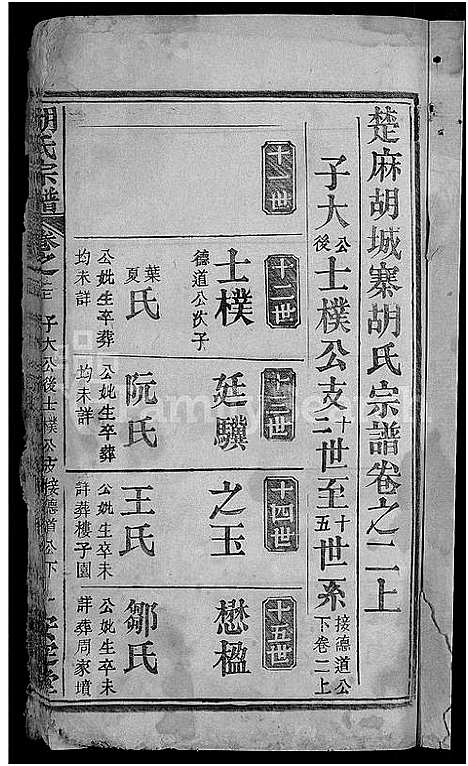 楚麻胡城寨胡氏宗譜卷之二上
子大公後士樸公支十二世至十五世系接德道公下卷二上
十一世
十二世
士樸
德道公次子
葉夏氏
公妣生卒葬均未詳
十三世
廷驥
阮氏
公妣生卒葬均未詳
十四世
之玉
王氏
公妣生卒未詳葬樓子園
十五世
懋楹
鄒氏
公妣生卒未詳葬周家墳
胡氏宗譜
卷之二
子大公後士樸公支接德道公下